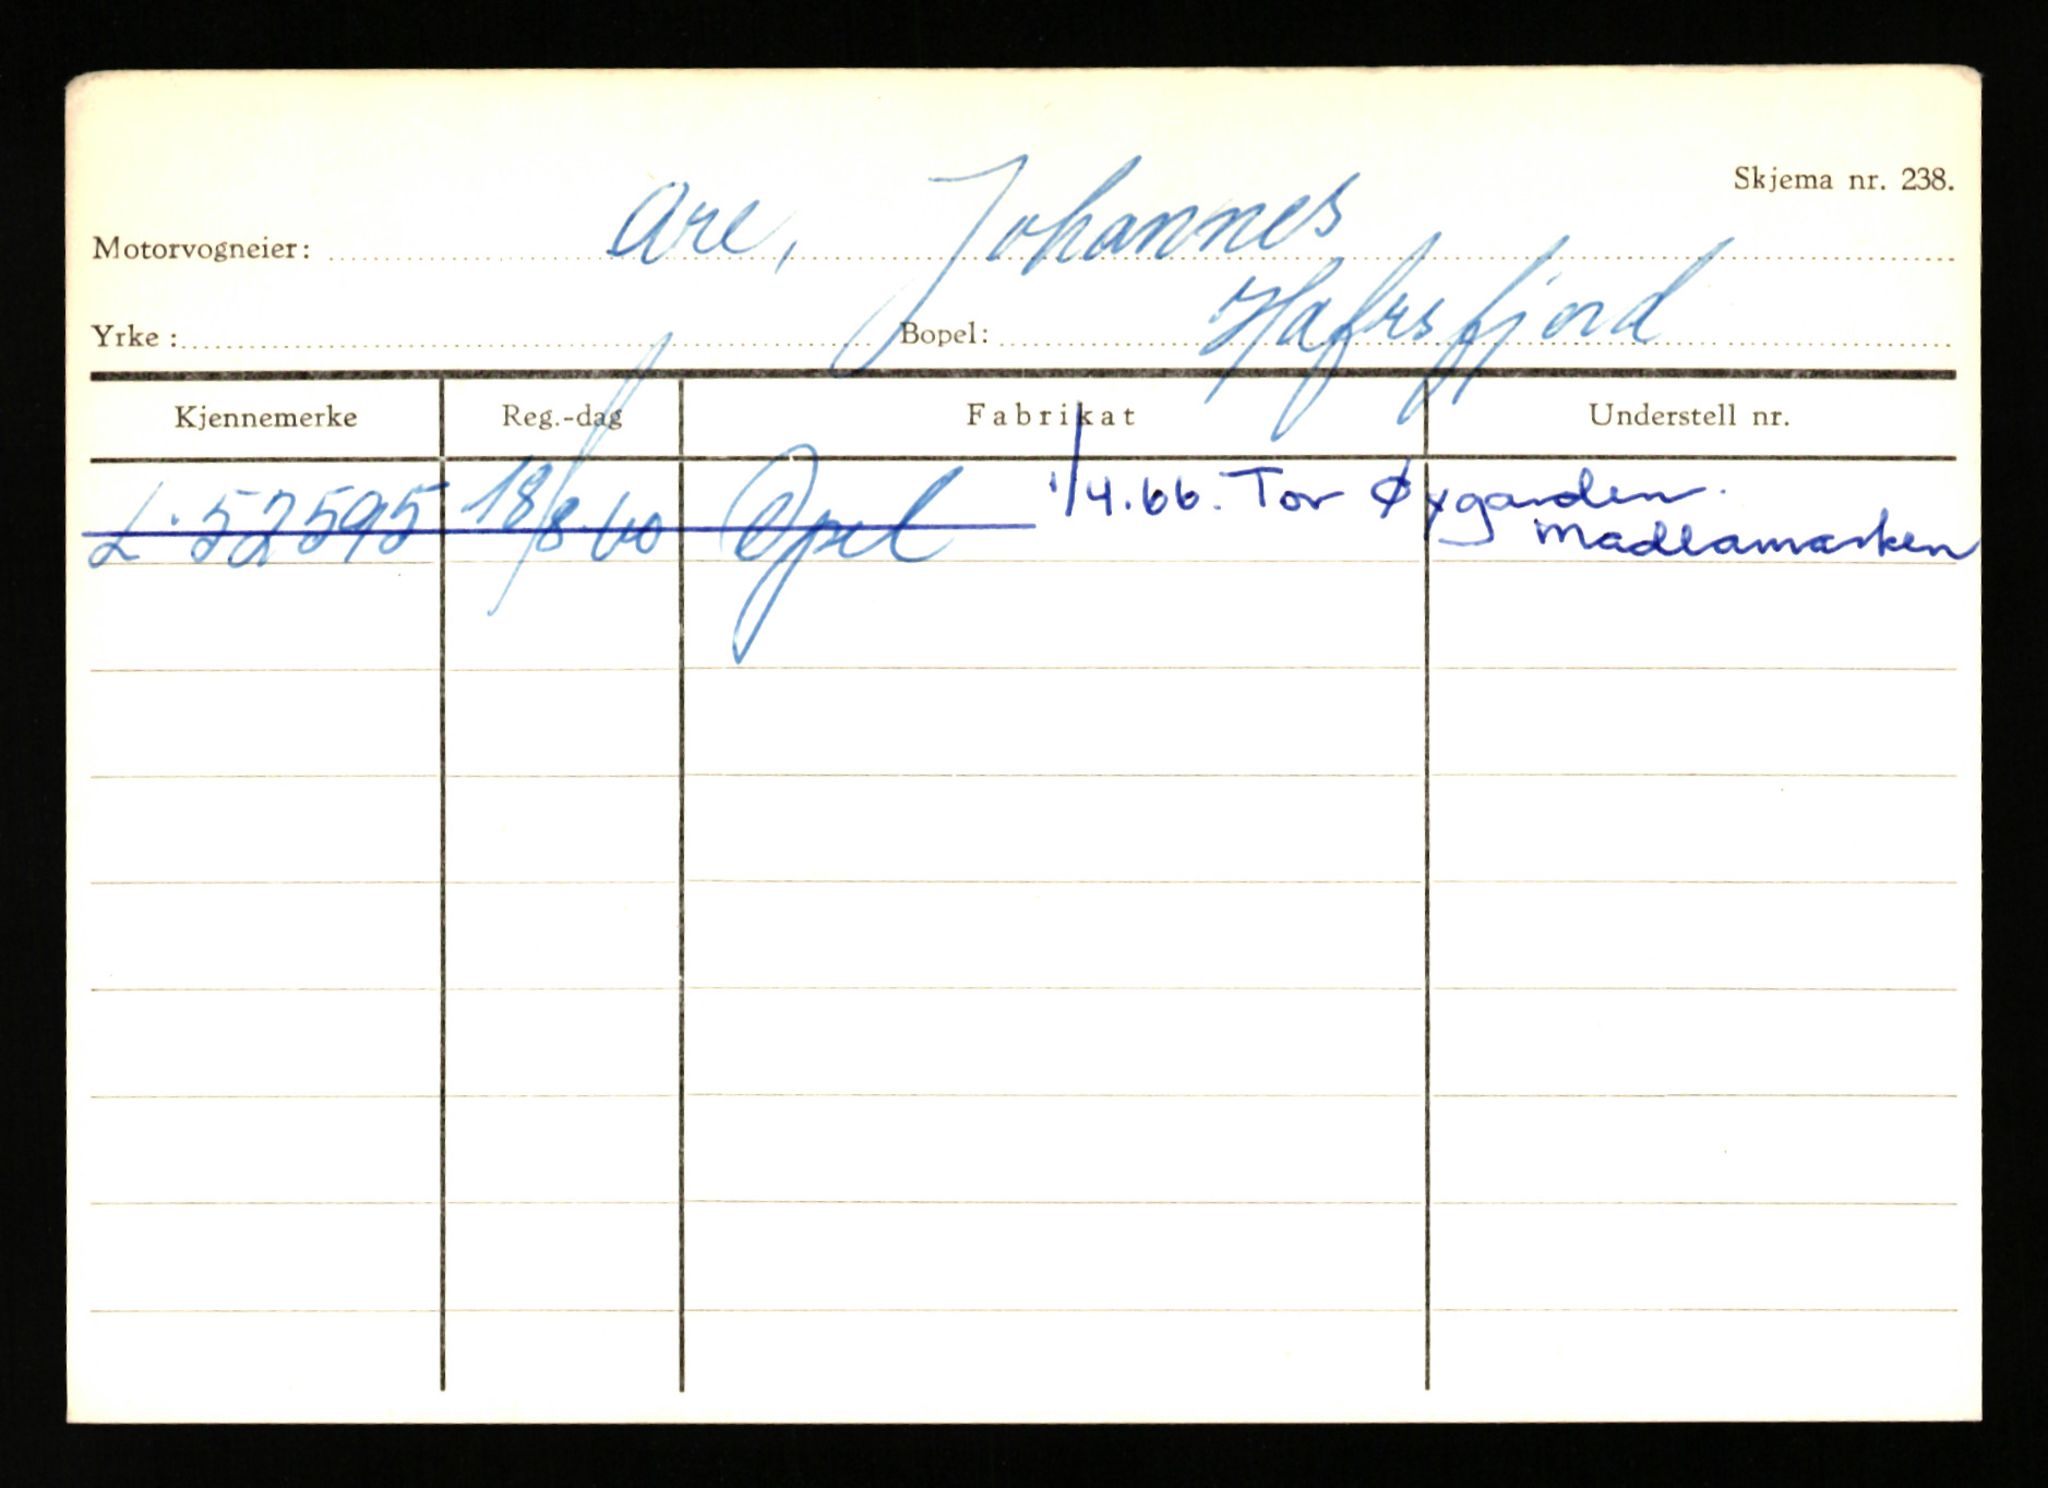 Skjema nr. 238.
Motorvogneier: Are, Johannes
Yrke: Bopel: Hafrsfjord
Kjennemerke Reg.-dag Fabrikat Understell nr.
L. 52595 18/8.60 Opel 1/4.66. Tor Øxgarden.
Madlamarken